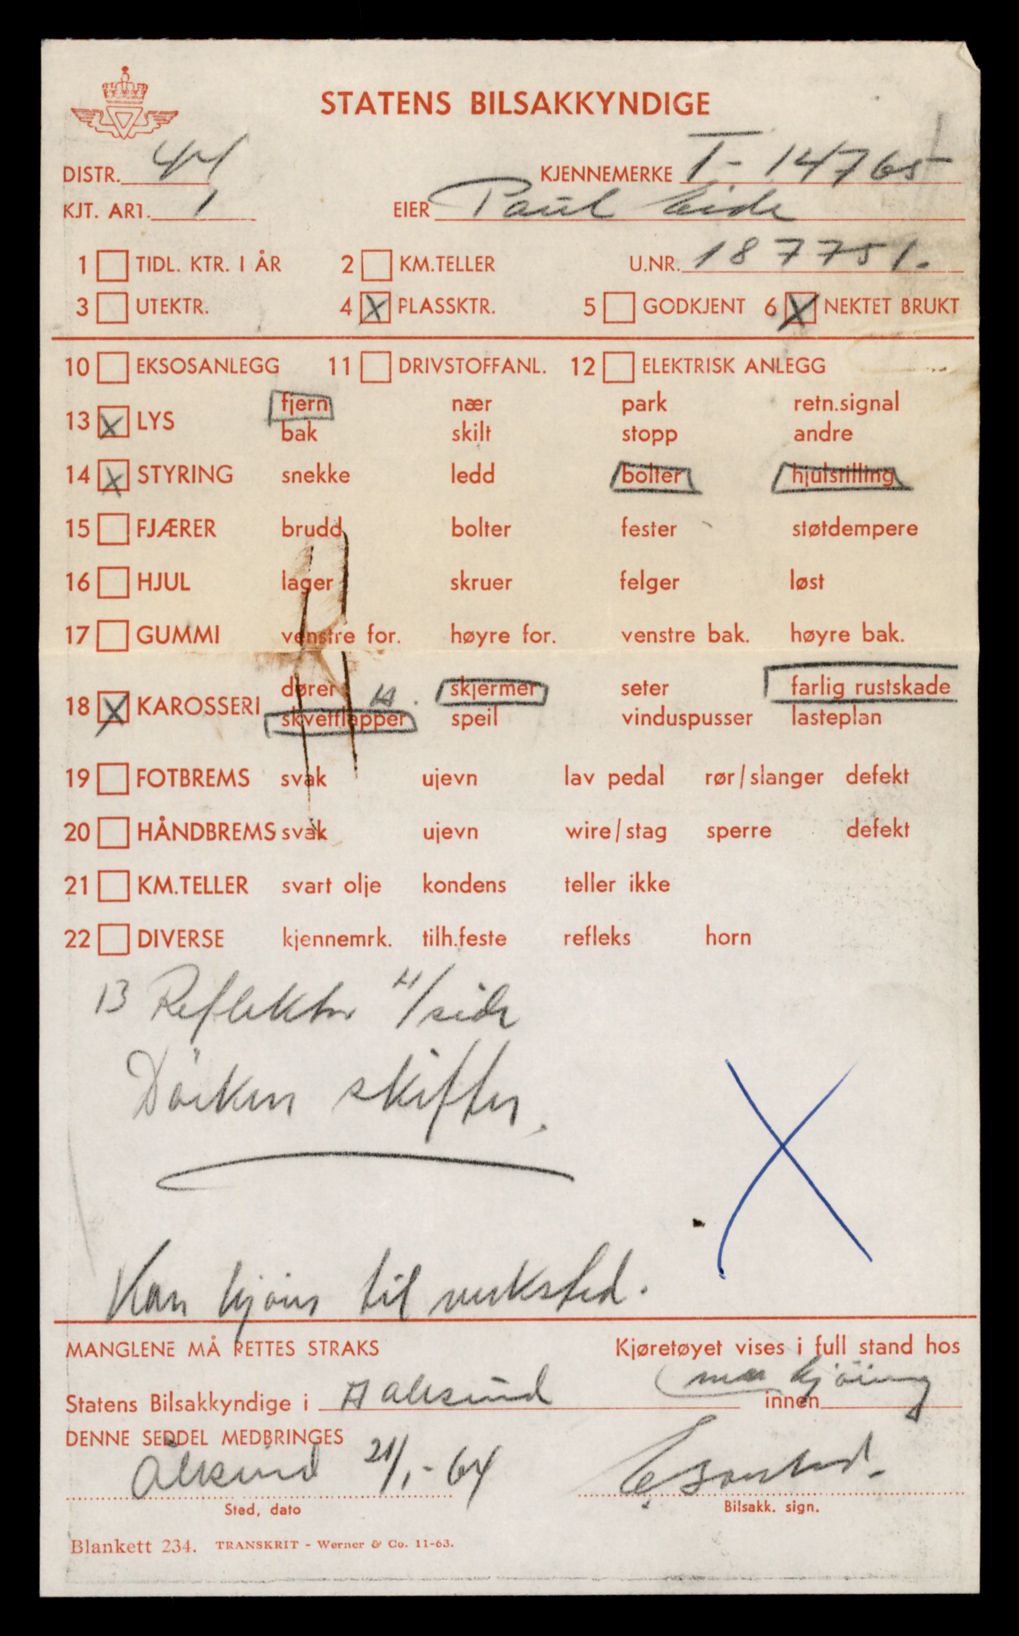 STATENS BILSAKKYNDIGE
DISTR. 44 KJENNEMERKE T-14765
KJT. ART. 1 EIER Paul Eide
1 TIDL. KTR. I ÅR 2 KM.TELLER U.NR. 187751.
3 UTEKTR. 4 X PLASSKTR. 5 GODKJENT 6 X NEKTET BRUKT
10 EKSOSANLEGG 11 DRIVSTOFFANL. 12 ELEKTRISK ANLEGG
13 X LYS fjern nær park retn.signal
bak skilt stopp andre
14 X STYRING snekke ledd bolter hjulstilling
15 FJÆRER brudd bolter fester støtdempere
16 HJUL lager skruer felger løst
17 GUMMI venstre for. høyre for. venstre bak. høyre bak.
18 X KAROSSERI dører skjermer seter farlig rustskade
skvettlapper speil vinduspusser lasteplan
19 FOTBREMS svak ujevn lav pedal rør/slanger defekt
20 HÅNDBREMS svak ujevn wire/stag sperre defekt
21 KM.TELLER svart olje kondens teller ikke
22 DIVERSE kjennemrk. tilh.feste refleks horn
13 Reflektor H/side
skiftes.
Kan kjøres til verksted.
MANGLENE MÅ RETTES STRAKS Kjøretøyet vises i full stand hos
Statens Bilsakkyndige i Aalesund innen
DENNE SEDDEL MEDBRINGES
Ålesund 21/1-64
Sted, dato Bilsakk. sign.
Blankett 234. TRANSKRIT - Werner & Co. 11-63.